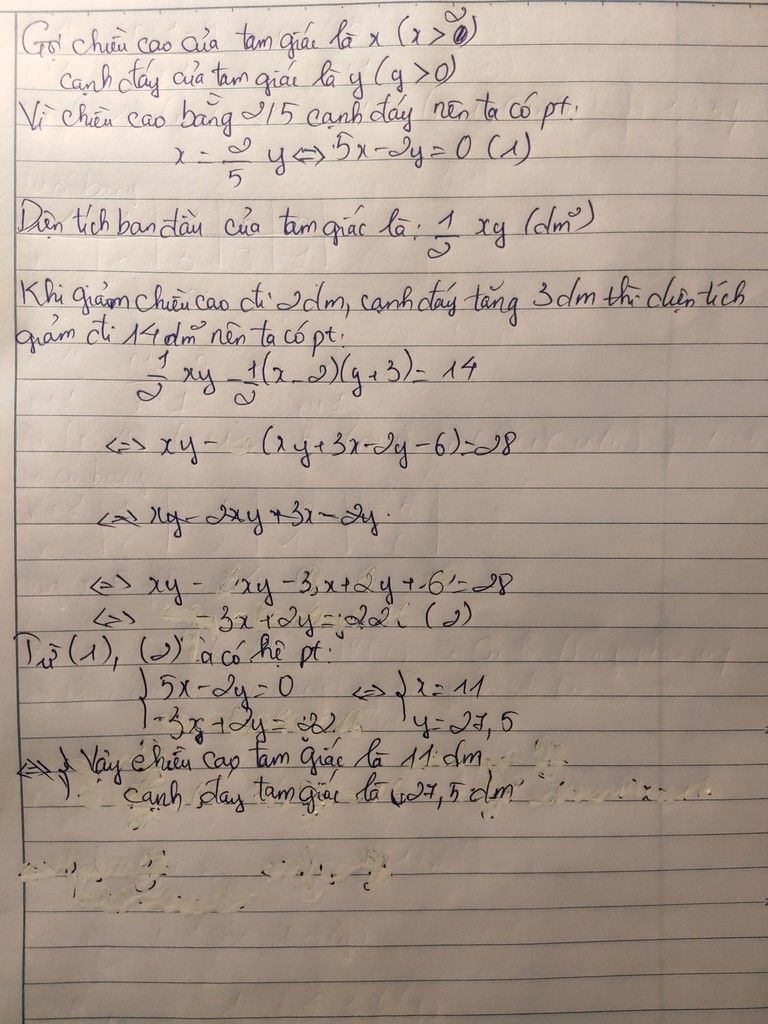 Gọi chiều cao của tam giác là x (x > 2)
cạnh đáy của tam giác là y (y > 0)
Vì chiều cao bằng 2/5 cạnh đáy nên ta có pt:
x = 2/5 y <=> 5x - 2y = 0 (1)
Diện tích ban đầu của tam giác là: 1/2 xy (dm²)
Khi giảm chiều cao đi 2dm, cạnh đáy tăng 3dm thì diện tích
giảm đi 14dm² nên ta có pt:
1/2 xy - 1/2(x - 2)(y + 3) = 14
<=> xy - (xy + 3x - 2y - 6) = 28
<=> xy - 2xy + 3x - 2y
<=> xy - xy - 3x + 2y + 6 = 28
<=> -3x + 2y = 22 (2)
Từ (1), (2) à có hệ pt:
{ 5x - 2y = 0 <=> { x = 11
-3x + 2y = 22 y = 27,5
<=> } Vậy chiều cao tam giác là 11 dm
cạnh đáy tam giác là 27,5 dm